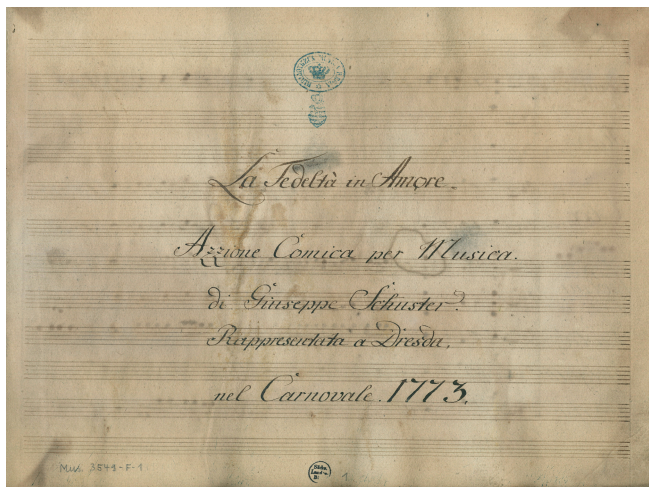 La Fedeltà in Amore.
Azzione Comica per Musica.
di Giuseppe Schuster.
Rappresentata a Dresda,
nel Carnovale. 1773.
Mus. 3549-F-1
1